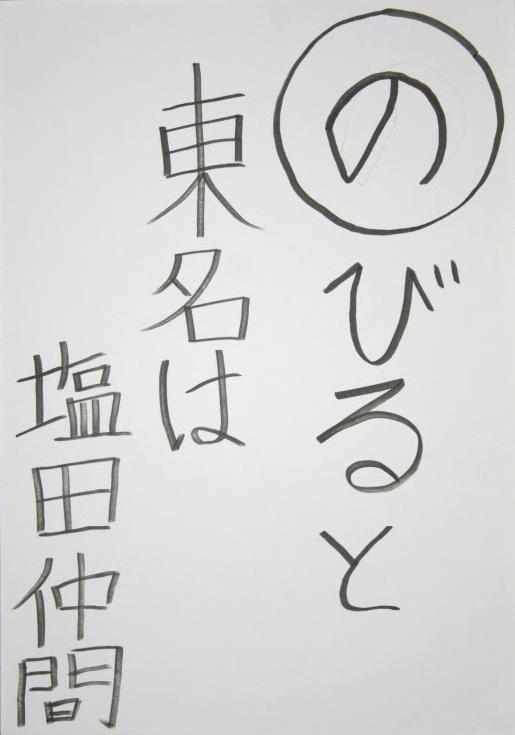 のびると
東名は
塩田仲間